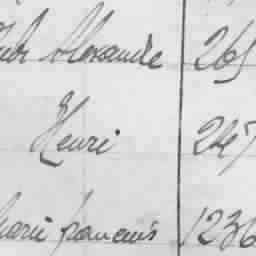 Alexandre 265
Henri 247
Marie françois 1236